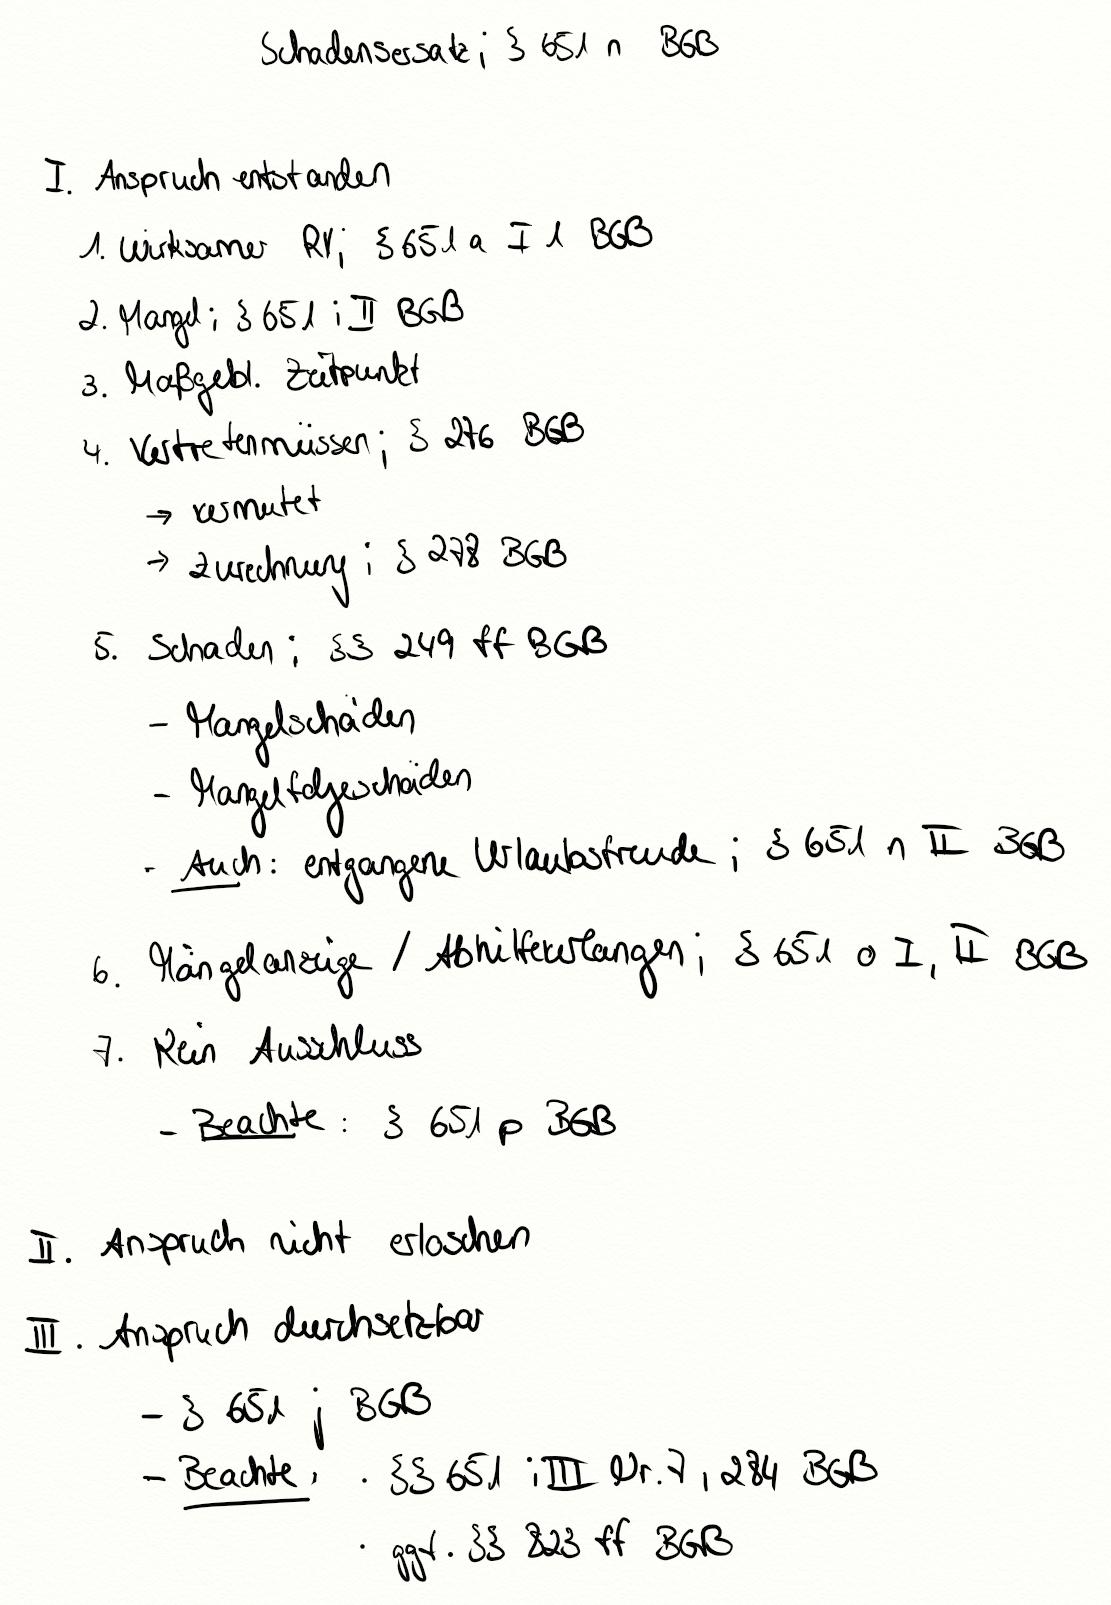 Schadensersatz; § 651 n BGB
I. Anspruch entstanden
1. Wirksamer RV; § 651 a I 1 BGB
2. Mangel; § 651 i II BGB
3. Maßgebl. Zeitpunkt
4. Vertretenmüssen; § 276 BGB
→ vermutet
→ Zurechnung; § 278 BGB
5. Schaden; §§ 249 ff BGB
- Mangelschäden
- Mangelfolgeschäden
- Auch: entgangene Urlaubsfreude; § 651 n II BGB
6. Mängelanzeige / Abhilfeverlangen; § 651 o I, II BGB
7. Kein Ausschluss
- Beachte: § 651 p BGB
II. Anspruch nicht erloschen
III. Anspruch durchsetzbar
- § 651 j BGB
- Beachte: · §§ 651 i III Nr. 7, 284 BGB
· ggf. §§ 823 ff BGB